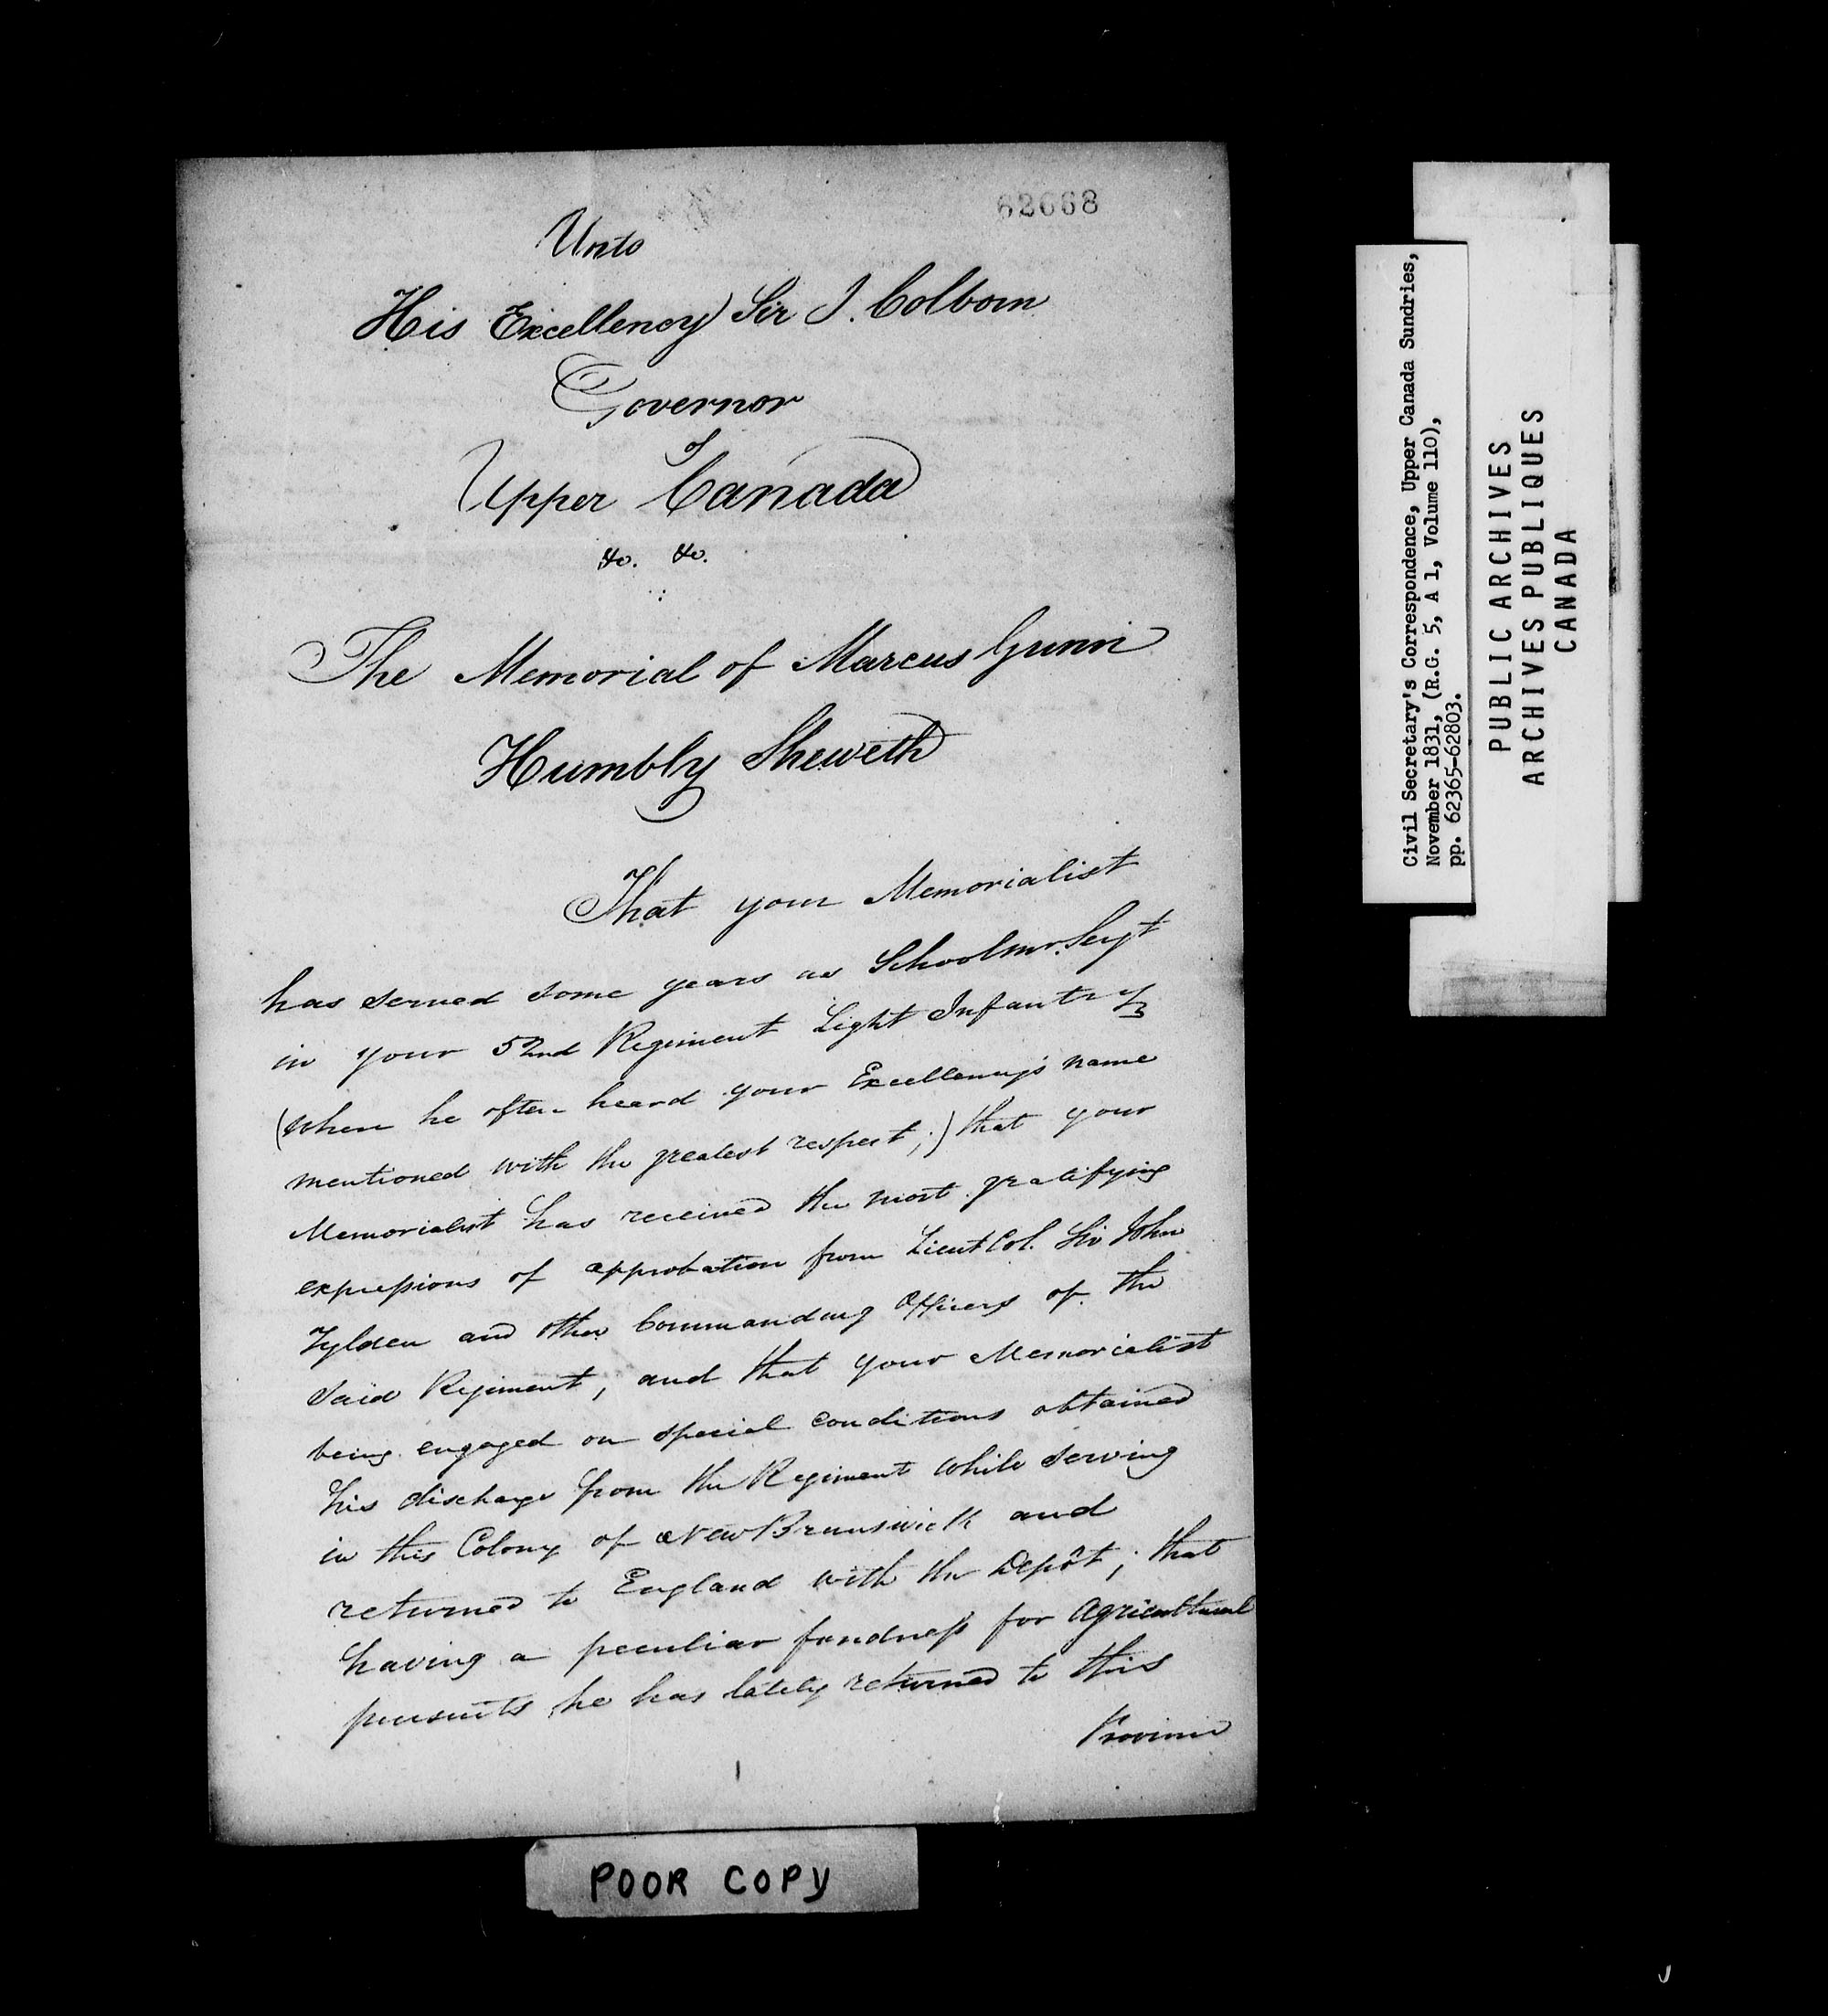 62668
Unto
His Excellency Sir J. Colborn
Governor
of
Upper Canada
&c. &c.
The Memorial of Marcus Gunn
Humbly Sheweth
That your Memorialist
has served some years as Schoolmr. Sergt
in your 52nd Regiment Light Infantry
(where he often heard your Excellency's name
mentioned with the greatest respect;) that your
Memorialist has received the most gratifying
expressions of approbation from Lieut Col. Sir John
Tylden and other Commanding Officers of the
said Regiment, and that your Memorialist
being engaged on special conditions obtained
his discharge from the Regiment while serving
in this Colony of New Brunswick and
returned to England with the Depôt; that
having a peculiar fondness for Agricultural
pursuits he has lately returned to this
Province
1
POOR COPY
Civil Secretary's Correspondence, Upper Canada Sundries,
November 1831, (R.G. 5, A 1, Volume 110),
pp. 62365-62803.
PUBLIC ARCHIVES
ARCHIVES PUBLIQUES
CANADA